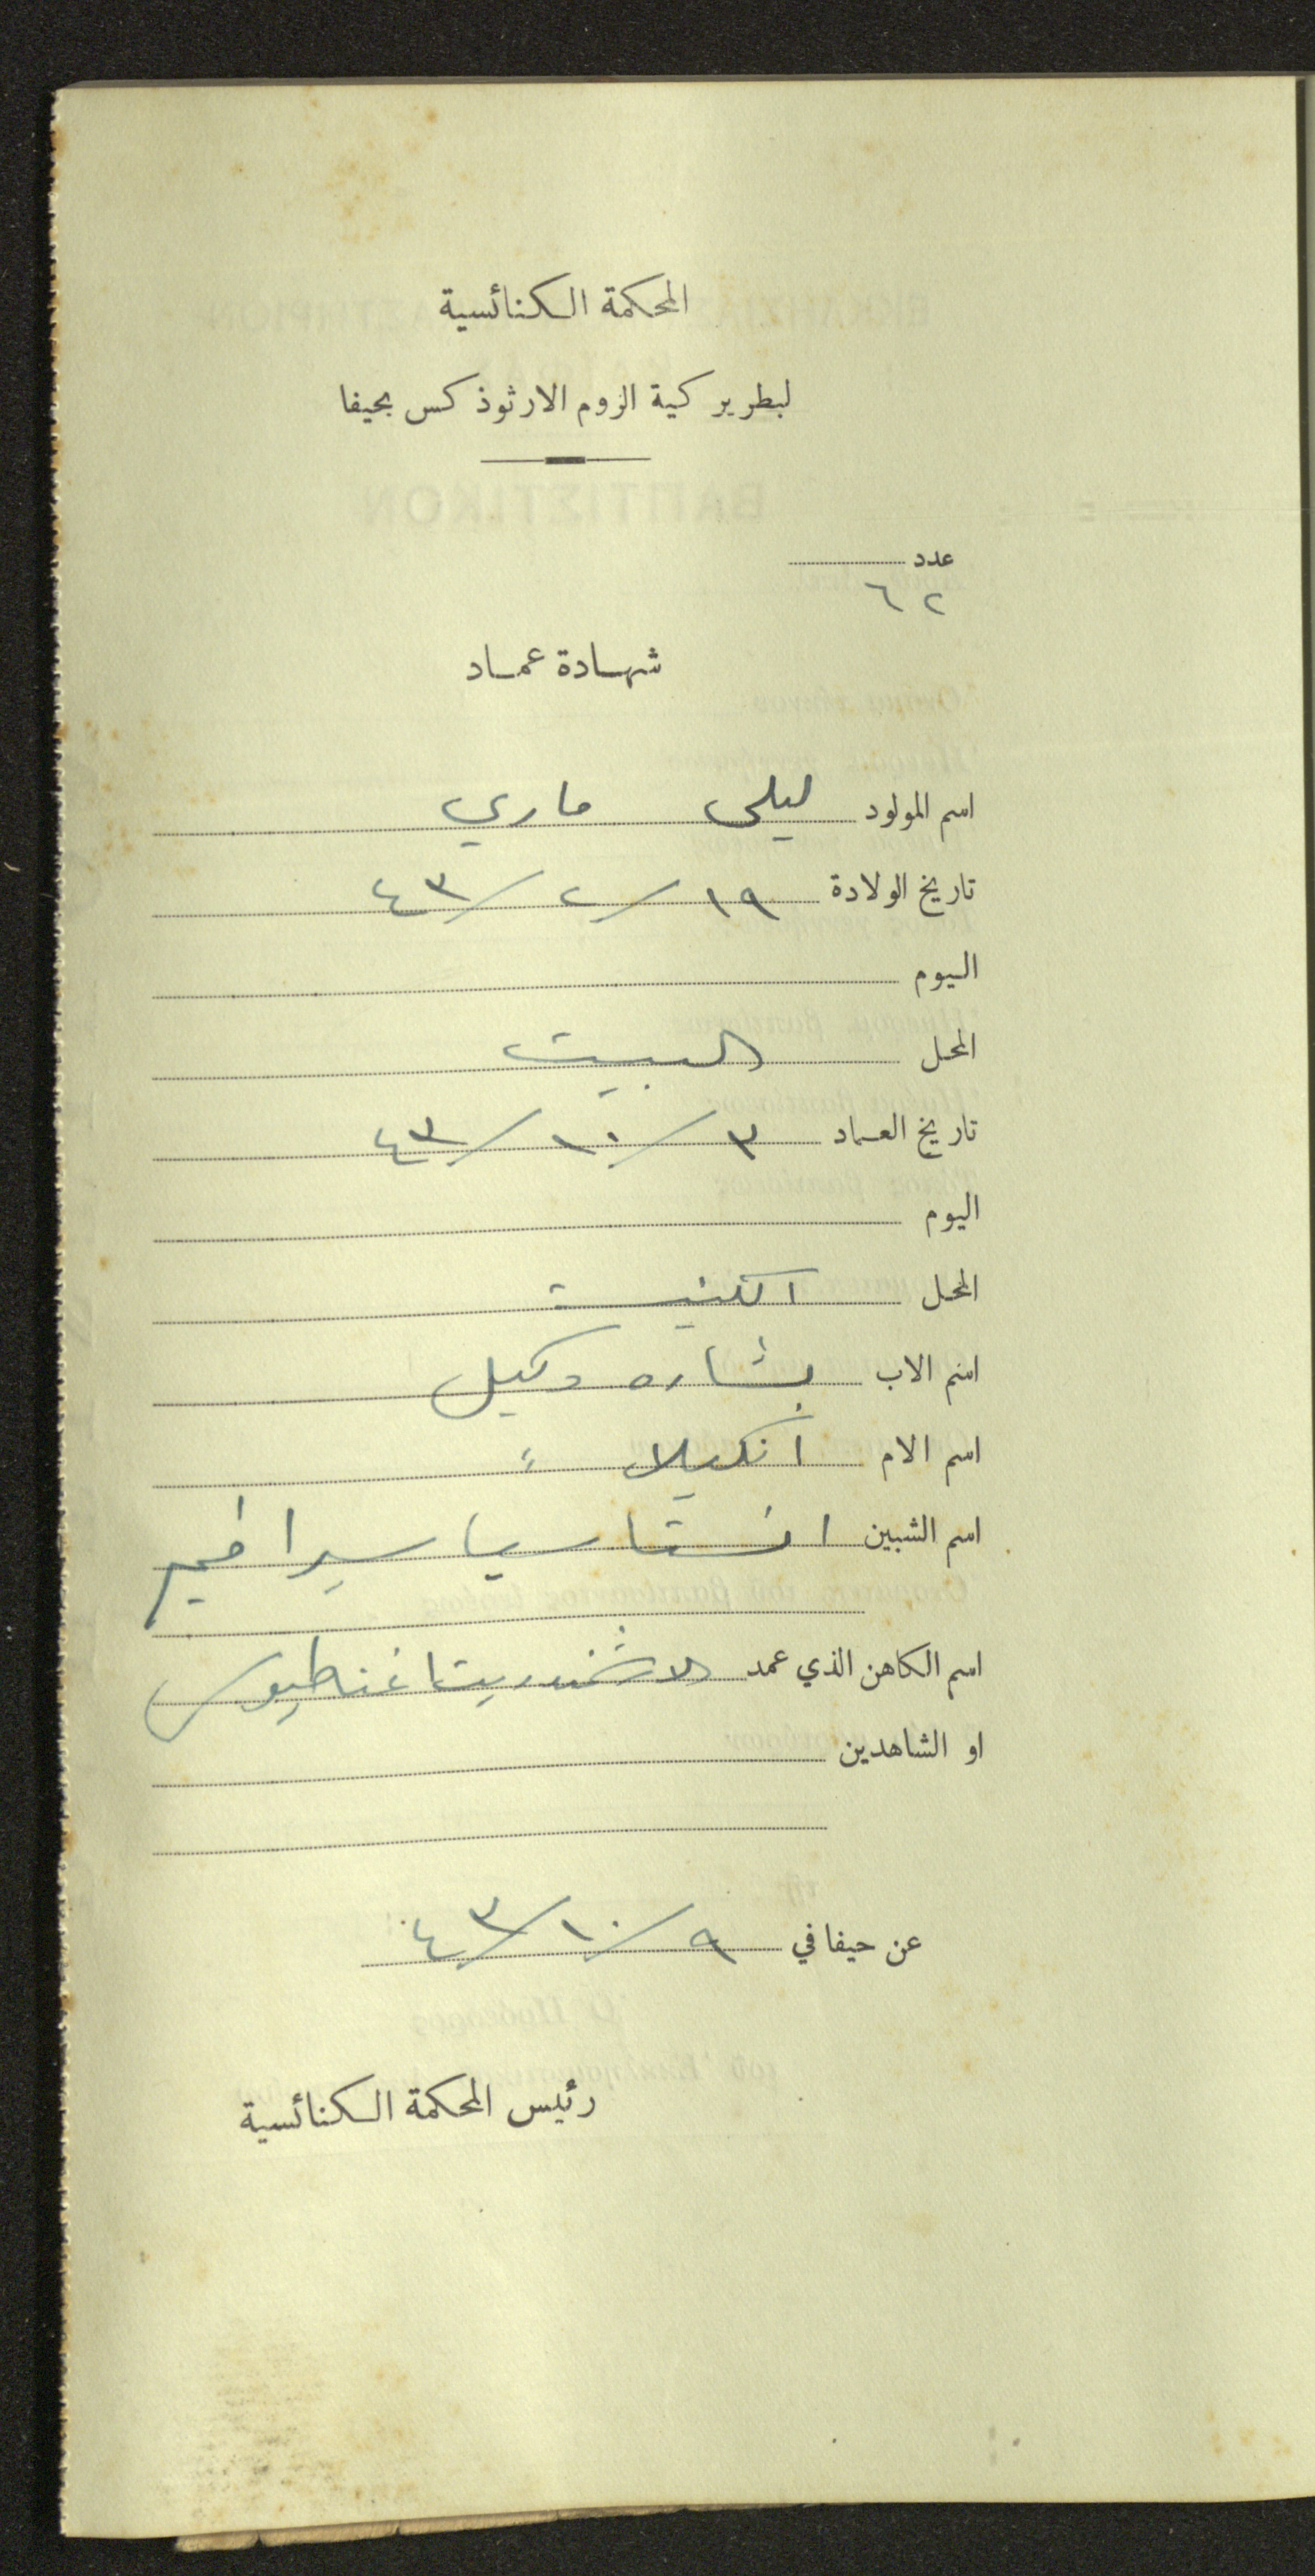 المحكمة الكنائسية
لبطريركية الروم الارثوذكس بحيفا
عدد
٦٢
شهادة عماد
اسم المولود ليلى ماري
تاريخ الولادة ١٩/٢/٤٣
اليوم
المحل البيت
تاريخ العماد ٣/١٠/٤٣
اليوم
المحل الكنيسة
اسم الاب بشاره وكيل
اسم الام انكيلا "
اسم الشبين انستاسيا سيرافيم
اسم الكاهن الذي عمد الارشمندريت اغناطيوس
او الشاهدين
عن حيفا في ٩/١٠/٤٣
رئيس المحكمة الكنائسية